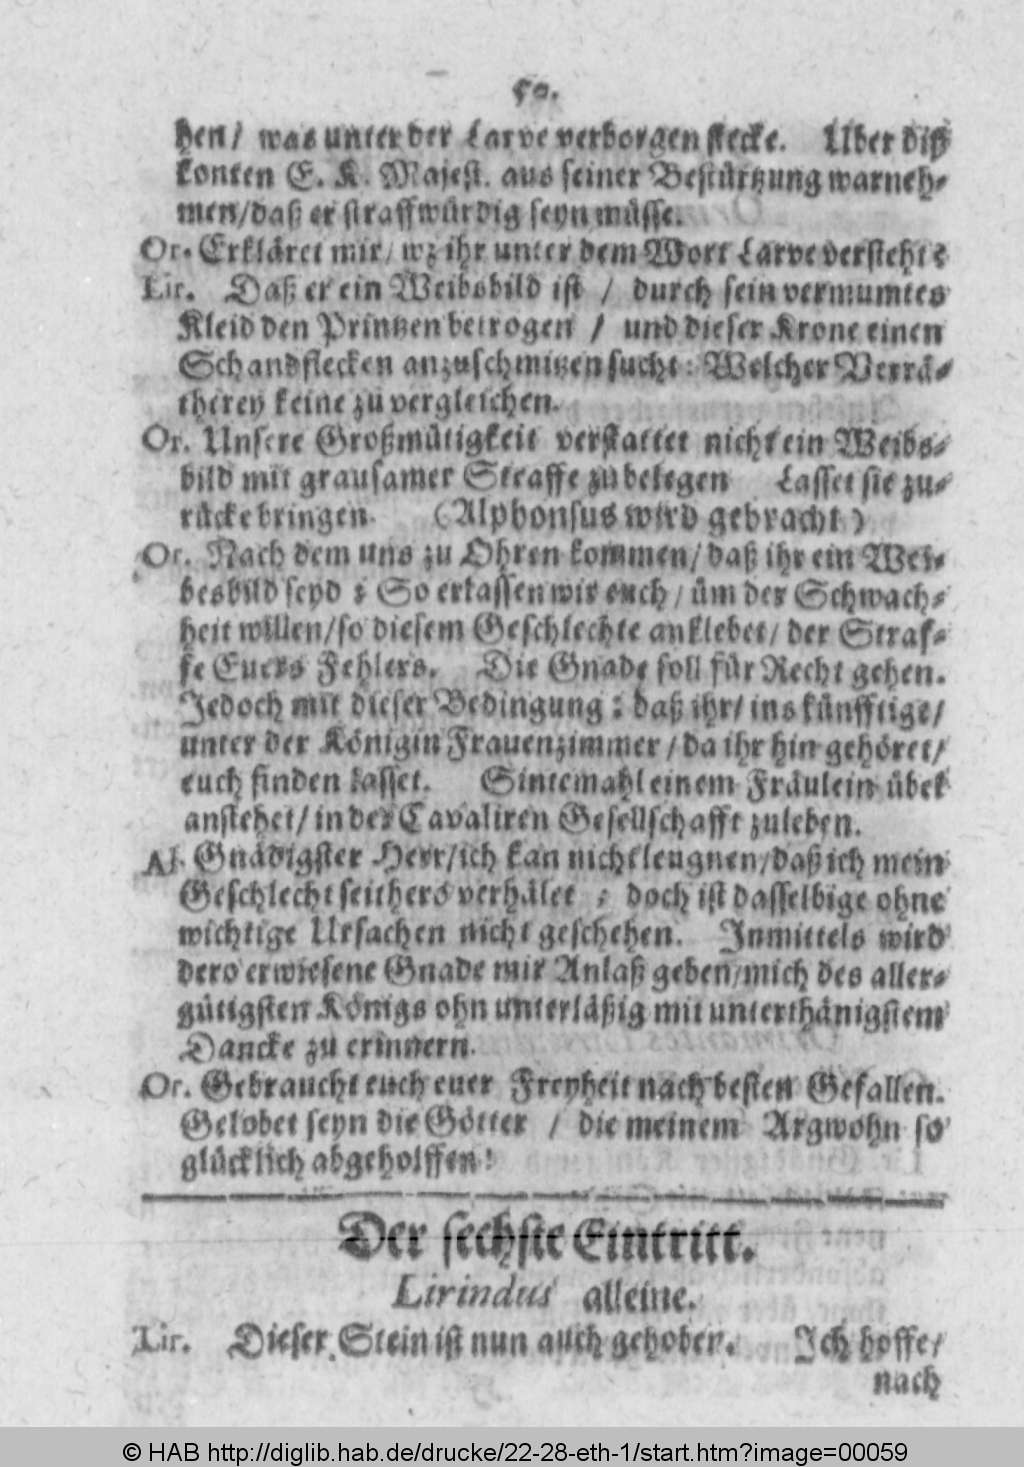 50.
hen/ was unter der Larve verborgen stecke. Uber diß
konten E. K. Majest. aus seiner Bestürtzung warneh-
men/daß er straffwürdig seyn müsse.
Or. Erkläret mir/ wz ihr unter dem Wort Larve versteht?
Lir. Daß er ein Weibsbild ist / durch sein vermumtes
Kleid den Printzen betrogen / und dieser Krone einen
Schandflecken anzuschmitzen sucht: Welcher Verrä-
therey keine zu vergleichen.
Or. Unsere Großmütigkeit verstattet nicht ein Weibs-
bild mit grausamer Straffe zu belegen Lasset sie zu-
rücke bringen. (Alphonsus wird gebracht)
Or. Nach dem uns zu Ohren kommen/ daß ihr ein Wei-
besbild seyd: So erlassen wir euch/ üm der Schwach-
heit willen/so diesem Geschlechte anklebet/ der Straf-
fe Euers Fehlers. Die Gnade soll für Recht gehen.
Jedoch mit dieser Bedingung: daß ihr/ ins künfftige/
unter der Königin Frauenzimmer/da ihr hin gehöret/
euch finden lasset. Sintemahl einem Fräulein übel
anstehet/ in der Cavaliren Gesellschafft zu leben.
Al. Gnädigster Herr/ich kan nicht leugnen/daß ich mein
Geschlecht seithero verhälet; doch ist dasselbige ohne
wichtige Ursachen nicht geschehen. Inmittels wird
dero erwiesene Gnade mir Anlaß geben/mich des aller-
gütigsten Königs ohn unterläßig mit unterthänigstem
Dancke zu erinnern.
Or. Gebraucht euch euer Freyheit nach besten Gefallen.
Gelobet seyn die Götter / die meinem Argwohn so
glücklich abgeholffen!
Der sechste Eintritt.
Lirindus alleine.
Lir. Dieser Stein ist nun auch gehoben. Ich hoffe/
nach
© HAB http://diglib.hab.de/drucke/22-28-eth-1/start.htm?image=00059